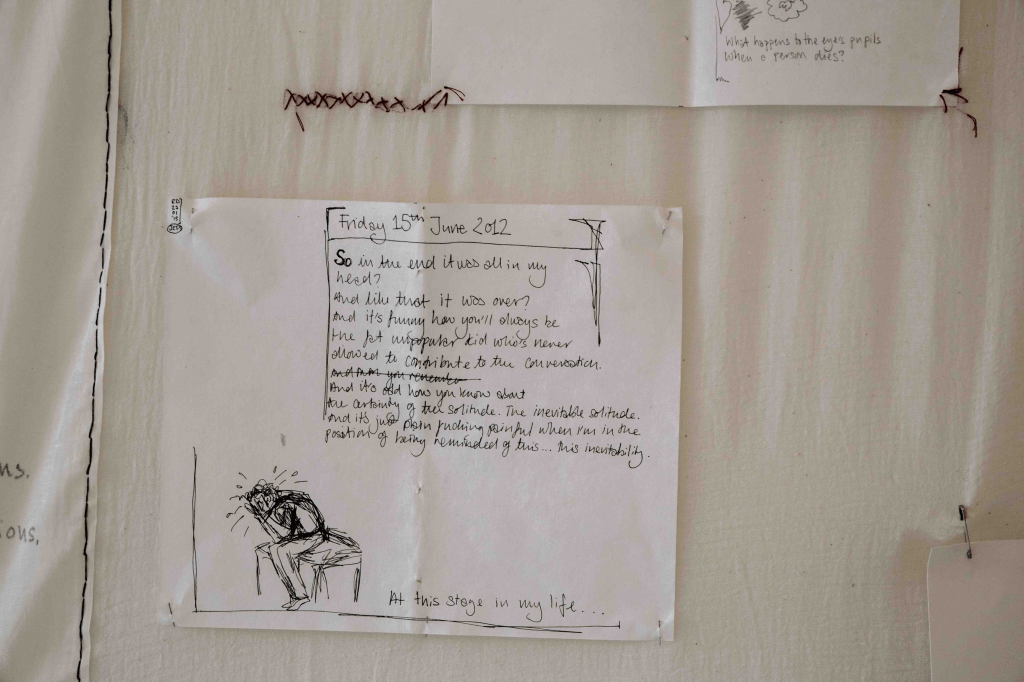 What happens to the eyes pupils
When a person dies?
RD
22
01
15
Friday 15th June 2012
So in the end it was all in my
head?
And like that it was over?
And it's funny how you'll always be
the fat unpopular kid who's never
allowed to contribute to the conversation.
And it's odd how you know about
the certainty of the solitude. The inevitable solitude.
And it's just plain fucking painful when I'm in the
position of being reminded of this... this inevitability.
ns.
ions,
At this stage in my life...